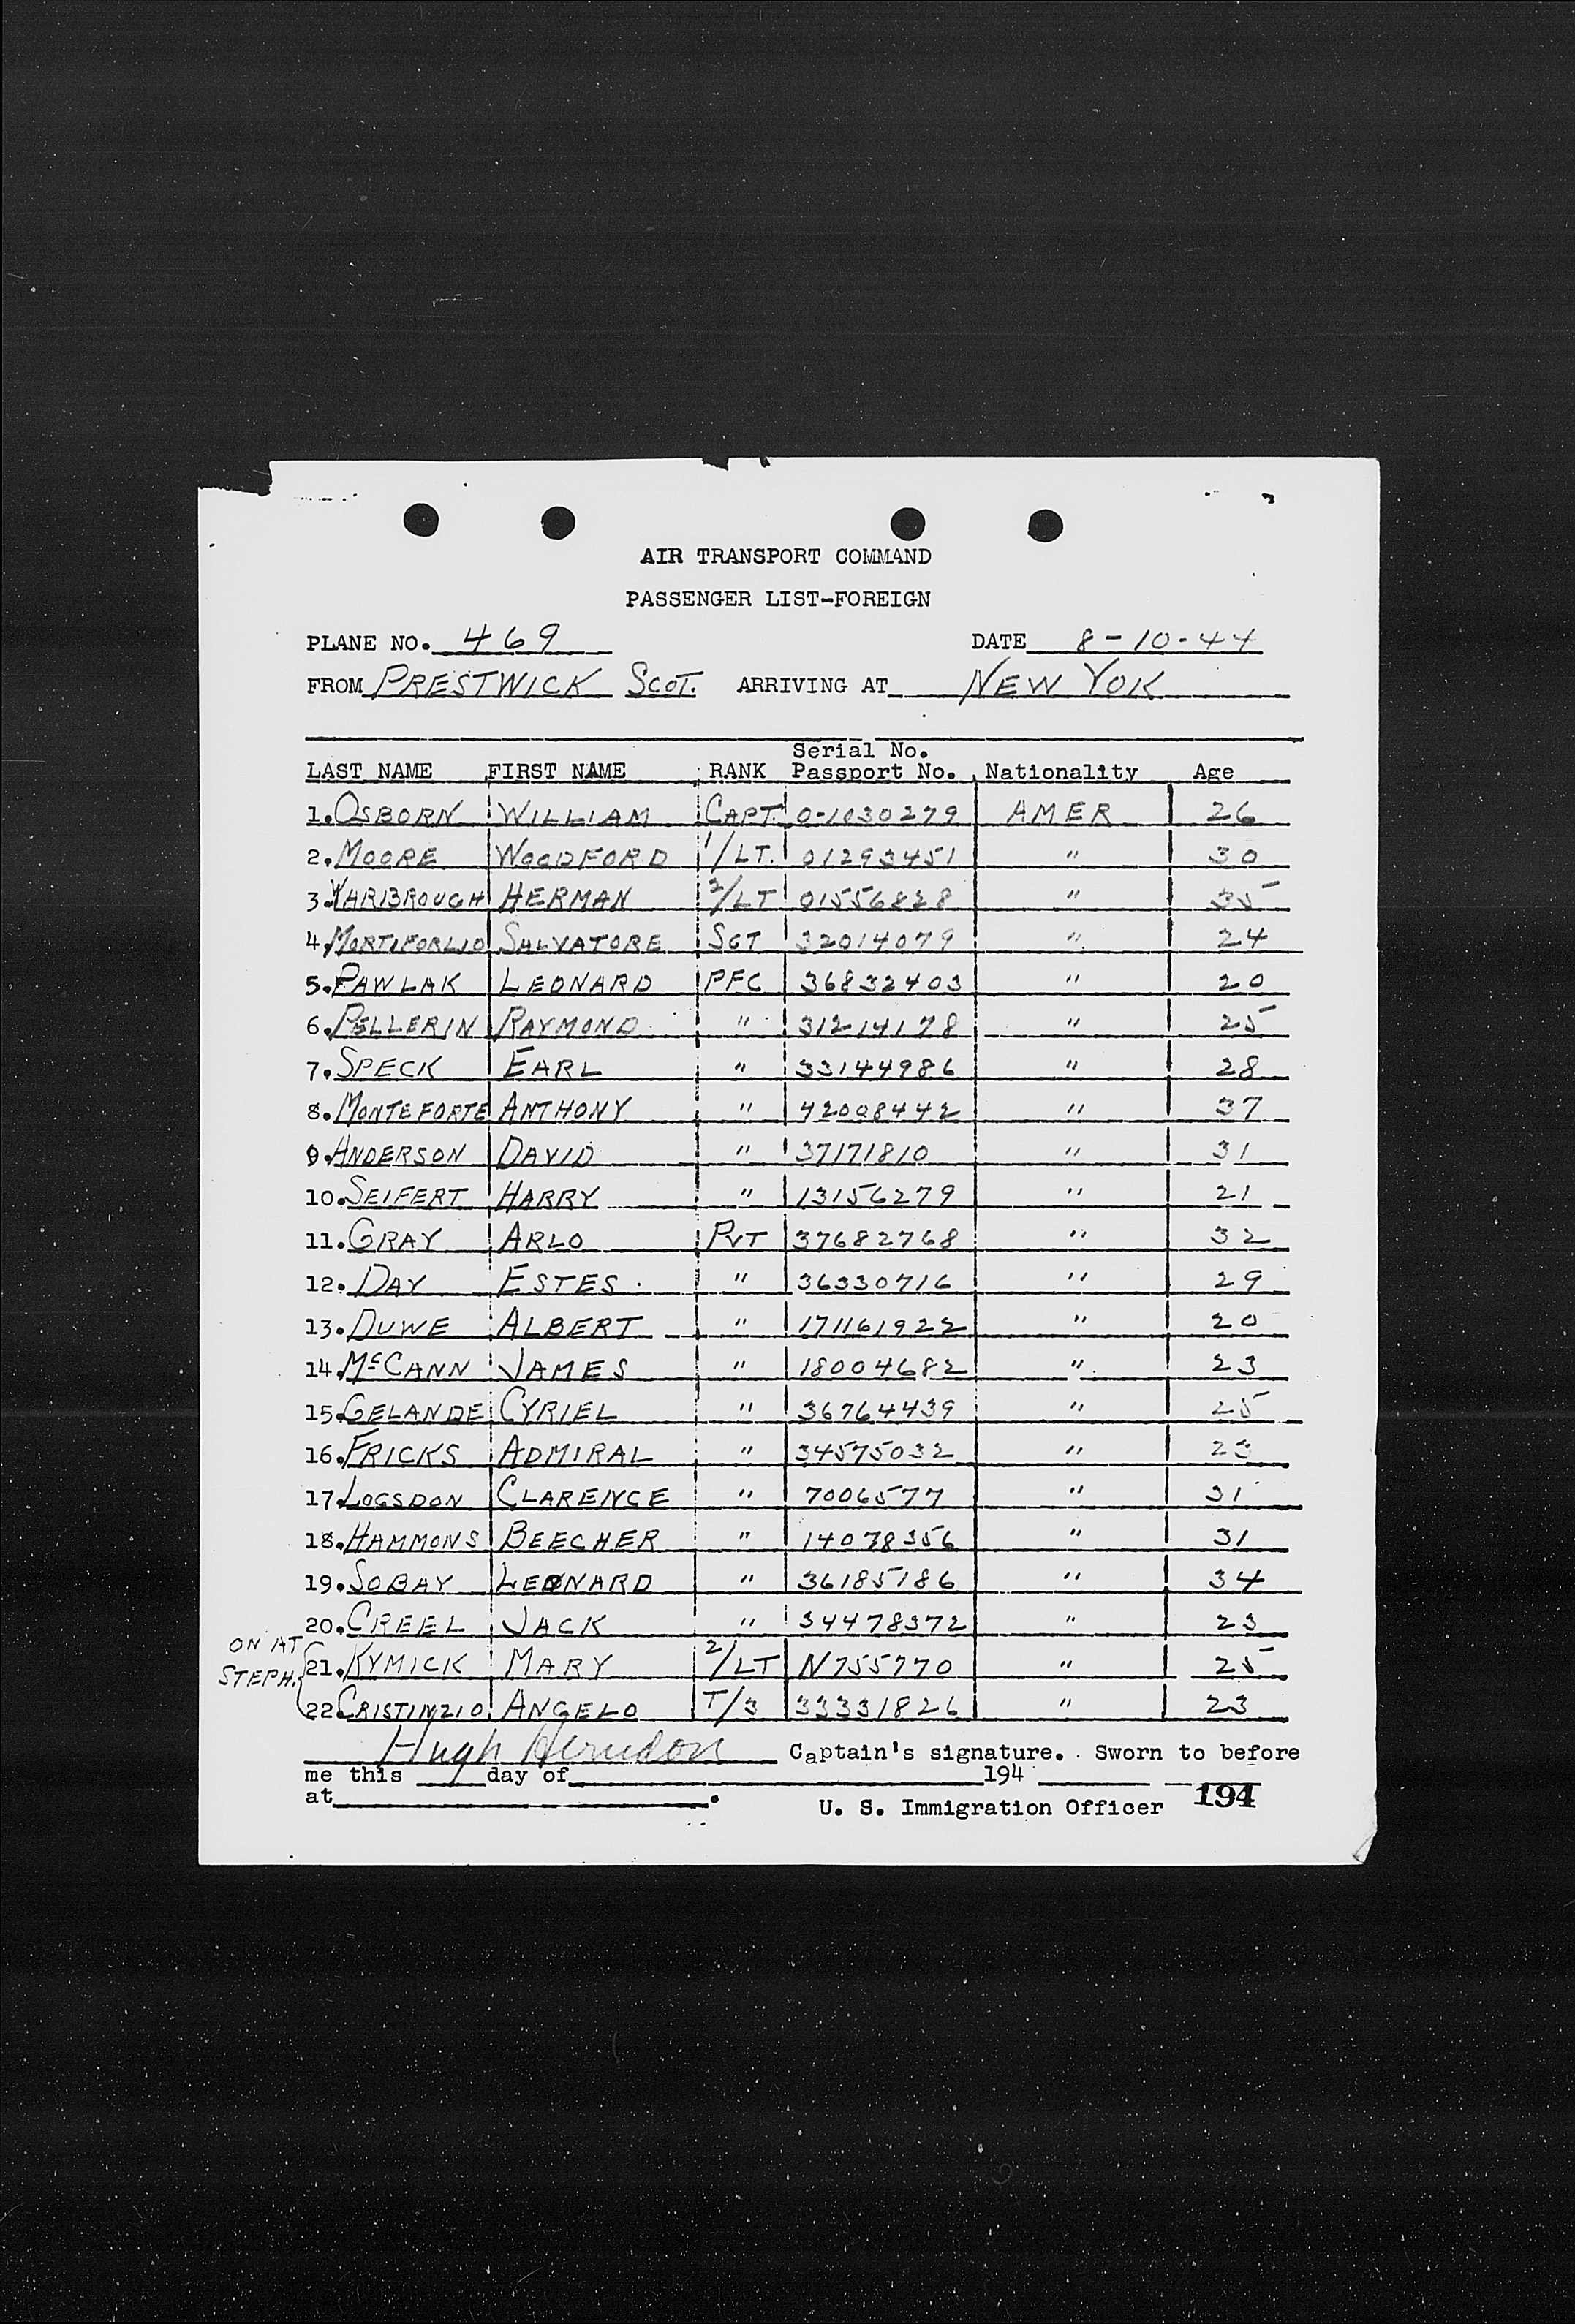 AIR TRANSPORT COMMAND
PASSENGER LIST-FOREIGN
PLANE NO. 469 DATE 8-10-44
FROM PRESTWICK SCOT. ARRIVING AT NEW YOK
LAST NAME FIRST NAME RANK Serial No. Passport No. Nationality Age
1. OSBORN WILLIAM CAPT. 0-1030279 AMER 26
2. MOORE WOODFORD 1/LT. 01293451 " 30
3. YARBROUGH HERMAN 2/LT 01556828 " 35
4. MORTIFORLIO SALVATORE SGT 32014079 " 24
5. PAWLAK LEONARD PFC 36832403 " 20
6. PELLERIN RAYMOND " 31214178 " 25
7. SPECK EARL " 33144986 " 28
8. MONTEFORTE ANTHONY " 42008442 " 37
9. ANDERSON DAVID " 37171810 " 31
10. SEIFERT HARRY " 13156279 " 21
11. GRAY ARLO PVT 37682768 " 32
12. DAY ESTES " 36330716 " 29
13. DUWE ALBERT " 171161922 " 20
14. McCANN JAMES " 18004682 " 23
15. GELANDE CYRIEL " 36764439 " 25
16. FRICKS ADMIRAL " 34575032 " 23
17. LOGSDON CLARENCE " 7006577 " 31
18. HAMMONS BEECHER " 14078356 " 31
19. SOBAY LEONARD " 36185186 " 34
20. CREEL JACK " 34478372 " 23
ON AT STEPH.
21. KYMICK MARY 2/LT N755770 " 25
22. CRISTINZIO ANGELO T/3 33331826 " 23
Hugh Herndon Captain's signature. Sworn to before
me this day of 194
at .
U. S. Immigration Officer 194